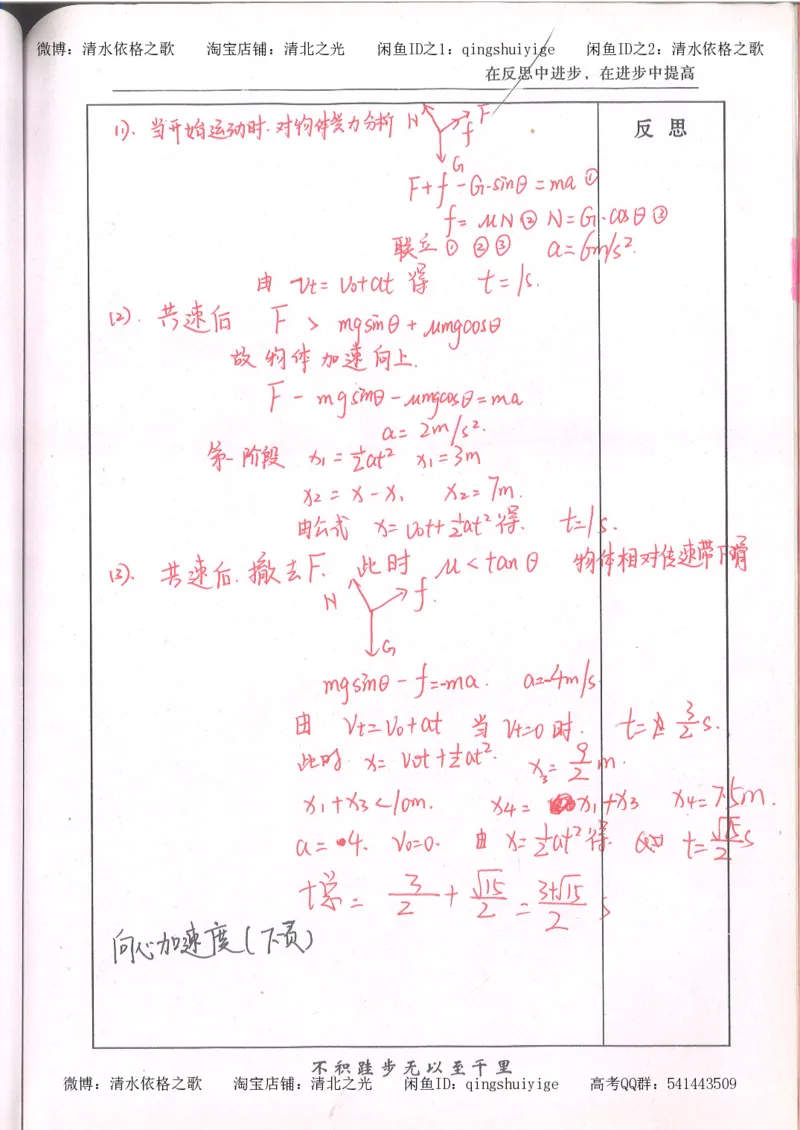 微博：清水依格之歌　淘宝店铺：清北之光　闲鱼ID之1：qingshuiyige　闲鱼ID之2：清水依格之歌
在反思中进步，在进步中提高
反思
(1). 当开始运动时. 对物体受力分析 N F f G
F+f-G·sinθ=ma ①
f=μN ② N=G·cosθ ③
联立 ① ② ③ a=6m/s².
由 Vt=V0+at 得 t=1s.
(2). 共速后 F > mgsinθ+μmgcosθ
故物体加速向上.
F-mgsinθ-μmgcosθ=ma
a=2m/s².
第一阶段 x₁=½at² x₁=3m
x₂=x-x₁ x₂=7m.
由公式 x=v0t+½at² 得. t=1s.
(3). 共速后. 撤去F. 此时 μ<tanθ 物体相对传速带下滑
N f. G
mgsinθ-f=-ma. a=-4m/s
由 Vt=V0+at 当 Vt=0时. t=3/2 s.
此时 x=V0t+½at². x₃=9/2 m.
x₁+x₃<10m. x₄=x₁+x₃ x₄=7.5m.
a=4. V0=0. 由 x=½at² 得. t=√15/2 s
t总=3/2+√15/2=(3+√15)/2 s
向心加速度(下页)
不积跬步无以至千里
微博：清水依格之歌　淘宝店铺：清北之光　闲鱼ID：qingshuiyige　高考QQ群：541443509